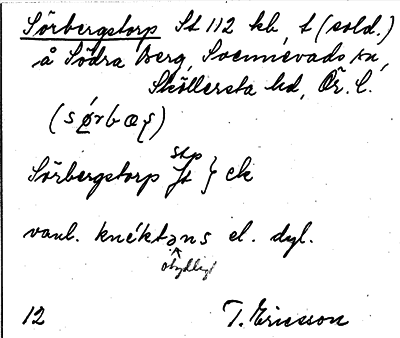 Sörbergstorp St 112 kb, t (sold.)
å Södra Berg, Svennevads sn,
Sköllersta hd, Ör. l.
(sǿrbæ̨)
stp
Sörbergstorp Jt } ek
vanl. knéktəns el. dyl.
otydligt
12 T. Ericsson